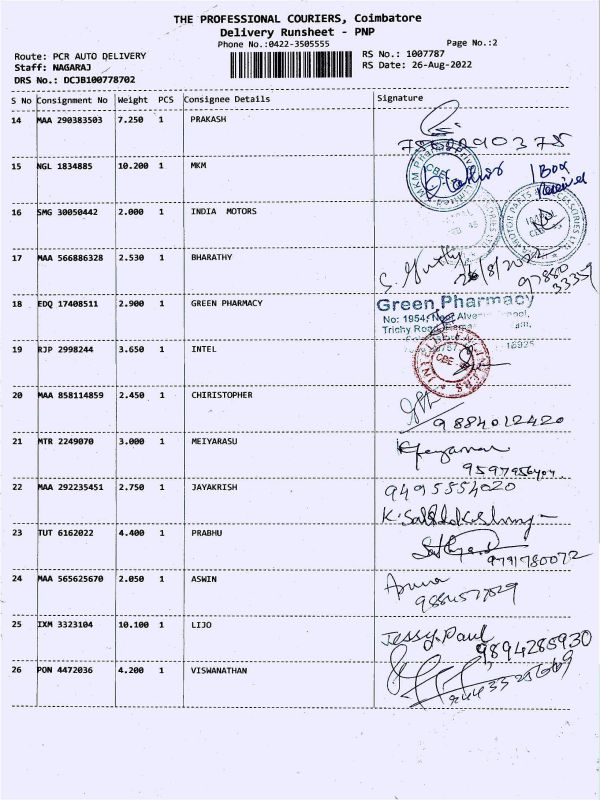 THE PROFESSIONAL COURIERS, Coimbatore
Delivery Runsheet - PNP
Phone No.:0422-3505555
Page No.:2
Route: PCR AUTO DELIVERY
RS No.: 1007787
Staff: NAGARAJ
RS Date: 26-Aug-2022
DRS No.: DCJB100778702
S No Consignment No Weight PCS Consignee Details Signature
14 MAA 290383503 7.250 1 PRAKASH
15 NGL 1834885 10.200 1 MKM
1 Box
Received
16 SMG 30050442 2.000 1 INDIA MOTORS
17 MAA 566886328 2.530 1 BHARATHY
26/8/2022
18 EDQ 17408511 2.900 1 GREEN PHARMACY Green Pharmacy
No: 1954,
Trichy Road
19 RJP 2998244 3.650 1 INTEL
20 MAA 858114859 2.450 1 CHIRISTOPHER
9884012420
21 MTR 2249070 3.000 1 MEIYARASU
22 MAA 292235451 2.750 1 JAYAKRISH 9495554020
23 TUT 6162022 4.400 1 PRABHU
9791780072
24 MAA 565625670 2.050 1 ASWIN
25 IXM 3323104 10.100 1 LIJO Jessy Paul
9894285930
26 PON 4472036 4.200 1 VISWANATHAN